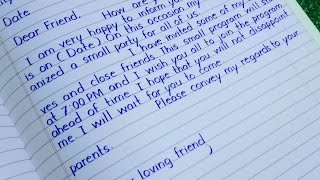 Date
Dear Friend.. How are
I am very happy to inform you
is on (Date) On this occasion my
anized a small party for all of us
ves and close friends. I have invited some of my
at 7:00 PM and I wish you all to join the program
ahead of time. I hope that you will not disappoint
me. I will wait for you to come
Please convey my regards to your
parents.
loving friend,